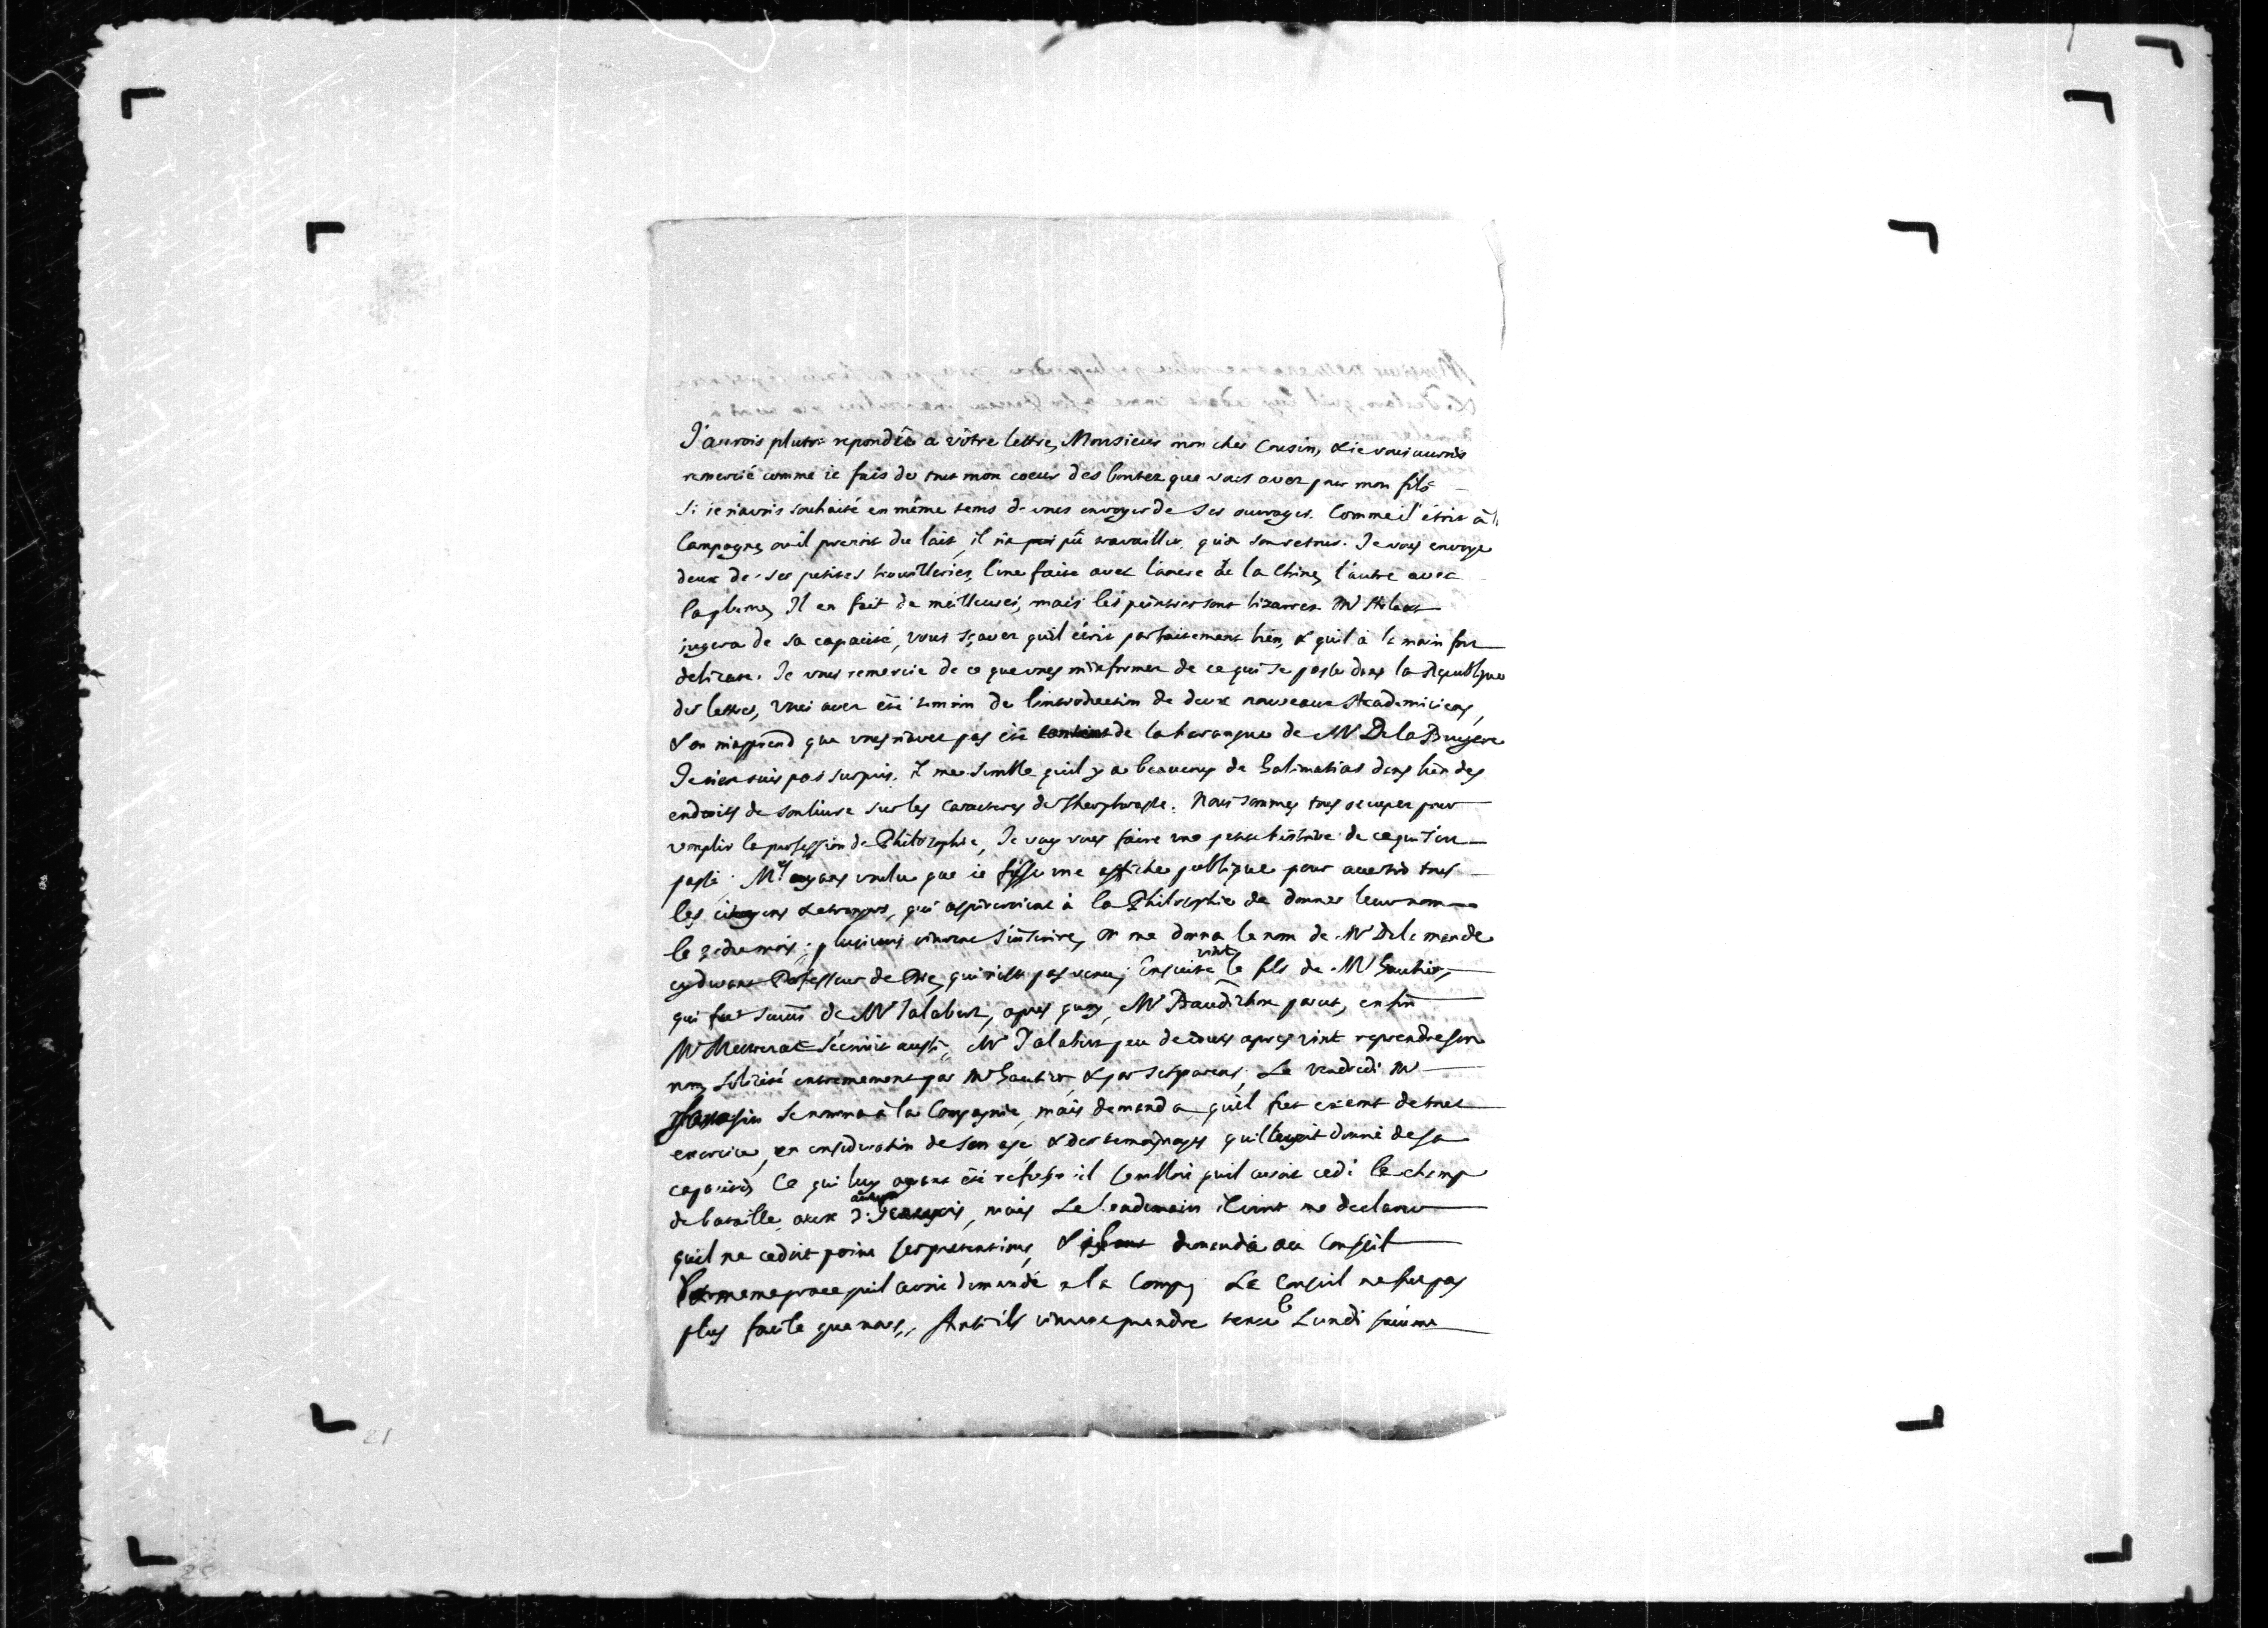 J'aurois plutot repondu a vôtre lettre, Monsieur mon cher Cousin, & ie vous aurois
remercié comme ie fais de tout mon coeur des bontez que vous avez pour mon fils
si ie n'avois souhaité en même tems de vous envoyer de ses ouvrages. Comme il étoit à la
Campagne, ou il prenoit du lait, il n'a pû travailler qu'a son retour. Je vous envoye
deux de ses petites brouilleries, l'une faite avec l'ancre de la Chine, l'autre avec
la plume, Il en fait de meilleures, mais les peintres sont bizarres. Mr
jugera de sa capacité, vous sçavez qu'il écrit parfaitement bien, & qu'il à la main fort
delicate. Je vous remercie de ce que vous m'informez de ce qui se passe dans la Republique
des lettres, vous avez été temoin de l'introduction de deux nouveaux Academiciens,
& on m'apprend que vous n'avez pas été content de la harangue de Mr De la Bruyere
Je n'en suis pas surpris. il me semble qu'il y a beaucoup de Galimatias dans bien des
endroits de son livre sur les caracteres de Theophraste. Nous sommes tous occupez pour
remplir la profession de Philosophie, Je vay vous faire une petite histoire de ce qui s'est
passé. Mrs ayant voulu que ie fisse une affiche publique pour avertir tous
les citoyens & etrangers, qui aspireroient à la Philosophie de donner leur nom
le 2 du mois; plusieurs vinrent s'inscrire, on me donna le nom de Mr De la mande
cy devant Professeur de Die, qui n'est pas venu; Ensuite vint le fils de Mr Gautier,
qui fut suivi de Mr Jalabert, apres quoy, Mr Baudichon parut, enfin
Mr s'écrivit aussi, Mr Jalabert peu de iours apres vint reprendre son
nom, solicité extremement par Mr Gautier & par ses parens, Le vendredi Mr
se nomma à la Compagnie, mais demanda qu'il fut exemt de tout
exercice, en consideration de son age, & des temoignages qu'il avoit donné de sa
capacité, Ce qui luy ayant été refusé il sembloit qu'il avoit cedé le champ
de bataille aux autres, mais Le lendemain il vint me declarer
qu'il ne cedoit point ses pretentions, & demanda au Conseil
la meme grace qu'il avoit demandé a la Comp. Le Conseil ne fut pas
plus facile que nous, Ainsi ils vinrent prendre le Lundi